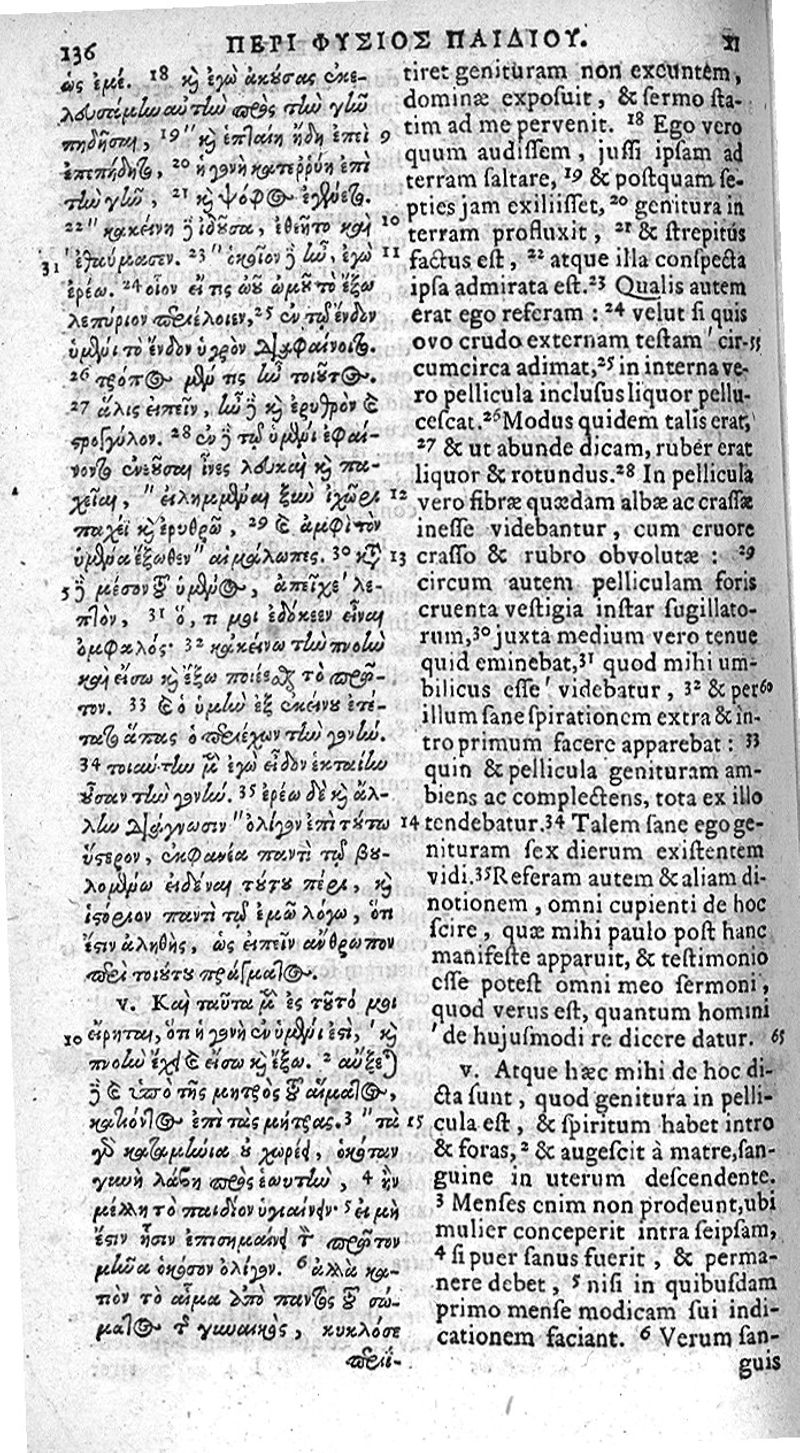 136 ΠΕΡΙ ΦΥΣΙΟΣ ΠΑΙΔΙΟΥ. XI
ὡς ἐμέ. 18 καὶ ἐγὼ ἀκούσας ἐκε-
λευσάμην αὐτὴν πρὸς τὴν γῆν
πηδῆσαι, 19 " καὶ ἑπτάκη ἤδη ἐπεὶ 9
ἐπεπήδητο, 20 ἡ γονὴ κατεῤῥύη ἐπὶ
τὴν γῆν, 21 καὶ ψόφος ἐγένετο.
22 " κακείνη δὲ ἰδοῦσα, ἐθεῆτο καὶ 10
31 ' ἐθαύμασεν. 23 " ὁκοῖον δὲ ἦν, ἐγὼ 11
ἐρέω. 24 οἷον εἴ τις ὠοῦ ὠμοῦ τὸ ἔξω
λεπύριον περιέλοιεν, 25 ἐν τῷ ἔνδον
ὑμένι τὸ ἔνδον ὑγρὸν διαφαίνοιτο.
26 τρόπος μέν τις ἦν τοιοῦτος.
27 ἅλις εἰπεῖν, ἦν δὲ καὶ ἐρυθρὸν καὶ
στρογγύλον. 28 ἐν δὲ τῷ ὑμένι ἐφαί-
νοντο ἐνεοῦσαι ἶνες λευκαὶ καὶ πα-
χεῖαι, " εἰλημμέναι ξὺν ἰχῶρι 12
παχέϊ καὶ ἐρυθρῷ, 29 καὶ ἀμφὶ τὸν
ὑμένα ἔξωθεν " αἱμάλωπες. 30 κατὰ 13
5 δὲ μέσον τοῦ ὑμένος, ἀπεῖχε ' λε-
πτὸν, 31 ὅ, τι μοι ἐδόκεεν εἶναι
ὀμφαλός· 32 κακείνῳ τὴν πνοὴν
καὶ εἴσω καὶ ἔξω ποιέεσθαι τὸ πρῶ-
τον. 33 καὶ ὁ ὑμὴν ἐξ ἐκείνου ἐτέ-
τατο ἅπας ὁ περιέχων τὴν γονήν.
34 τοιαύτην μὲν ἐγὼ εἶδον ἑκταίην
οὖσαν τὴν γονήν. 35 ἐρέω δὲ καὶ ἄλ-
λην διάγνωσιν " ὀλίγον ἐπὶ τούτῳ 14
ὕστερον, ἐκφανέα παντὶ τῷ βου-
λομένῳ εἰδέναι τούτου πέρι, καὶ
ἱστόριον παντὶ τῷ ἐμῷ λόγῳ, ὅτι
ἐστὶν ἀληθὴς, ὡς εἰπεῖν ἄνθρωπον
περὶ τοιούτου πράγματος.
v. Καὶ ταῦτα μὲν ἐς τοῦτό μοι
10 εἴρηται, ὅτι ἡ γονὴ ἐν ὑμένι ἐστὶ, ' καὶ
πνοὴν ἔχει καὶ εἴσω καὶ ἔξω. 2 αὔξεται
δὲ καὶ ὑπὸ τῆς μητρὸς τοῦ αἵματος,
κατιόντος ἐπὶ τὰς μήτρας. 3 " τὰ 15
γὰρ καταμήνια οὐ χωρέει, ὁκόταν
γυνὴ λάβῃ πρὸς ἑωυτὴν, 4 ἢν
μέλλῃ τὸ παιδίον ὑγιαίνειν· 5 εἰ μὴ
ἔστιν ᾗσιν ἐπισημαίνει τὸν πρῶτον
μῆνα ὁκόσον ὀλίγον. 6 ἀλλὰ κα-
πὸν τὸ αἷμα ἀπὸ παντὸς τοῦ σώ-
ματος τῆς γυναικὸς, κυκλόσε
περιΐ-
tiret genituram non exeuntem,
dominæ exposuit, & sermo sta-
tim ad me pervenit. 18 Ego vero
quum audissem, jussi ipsam ad
terram saltare, 19 & postquam se-
pties jam exiliisset, 20 genitura in
terram profluxit, 21 & strepitus
factus est, 22 atque illa conspecta
ipsa admirata est. 23 Qualis autem
erat ego referam : 24 velut si quis
ovo crudo externam testam ' cir- 55
cumcirca adimat, 25 in interna ve-
ro pellicula inclusus liquor pellu-
cescat. 26 Modus quidem talis erat,
27 & ut abunde dicam, ruber erat
liquor & rotundus. 28 In pellicula
vero fibræ quædam albæ ac crassæ
inesse videbantur, cum cruore
crasso & rubro obvolutæ : 29
circum autem pelliculam foris
cruenta vestigia instar sugillato-
rum, 30 juxta medium vero tenue
quid eminebat, 31 quod mihi um-
bilicus esse ' videbatur, 32 & per 60
illum sane spirationem extra & in-
tro primum facere apparebat : 33
quin & pellicula genituram am-
biens ac complectens, tota ex illo
tendebatur. 34 Talem sane ego ge-
nituram sex dierum existentem
vidi. 35 Referam autem & aliam di-
notionem, omni cupienti de hoc
scire, quæ mihi paulo post hanc
manifeste apparuit, & testimonio
esse potest omni meo sermoni,
quod verus est, quantum homini
' de hujusmodi re dicere datur. 65
v. Atque hæc mihi de hoc di-
cta sunt, quod genitura in pelli-
cula est, & spiritum habet intro
& foras, 2 & augescit à matre, san-
guine in uterum descendente.
3 Menses enim non prodeunt, ubi
mulier conceperit intra seipsam,
4 si puer sanus fuerit, & perma-
nere debet, 5 nisi in quibusdam
primo mense modicam sui indi-
cationem faciant. 6 Verum san-
guis